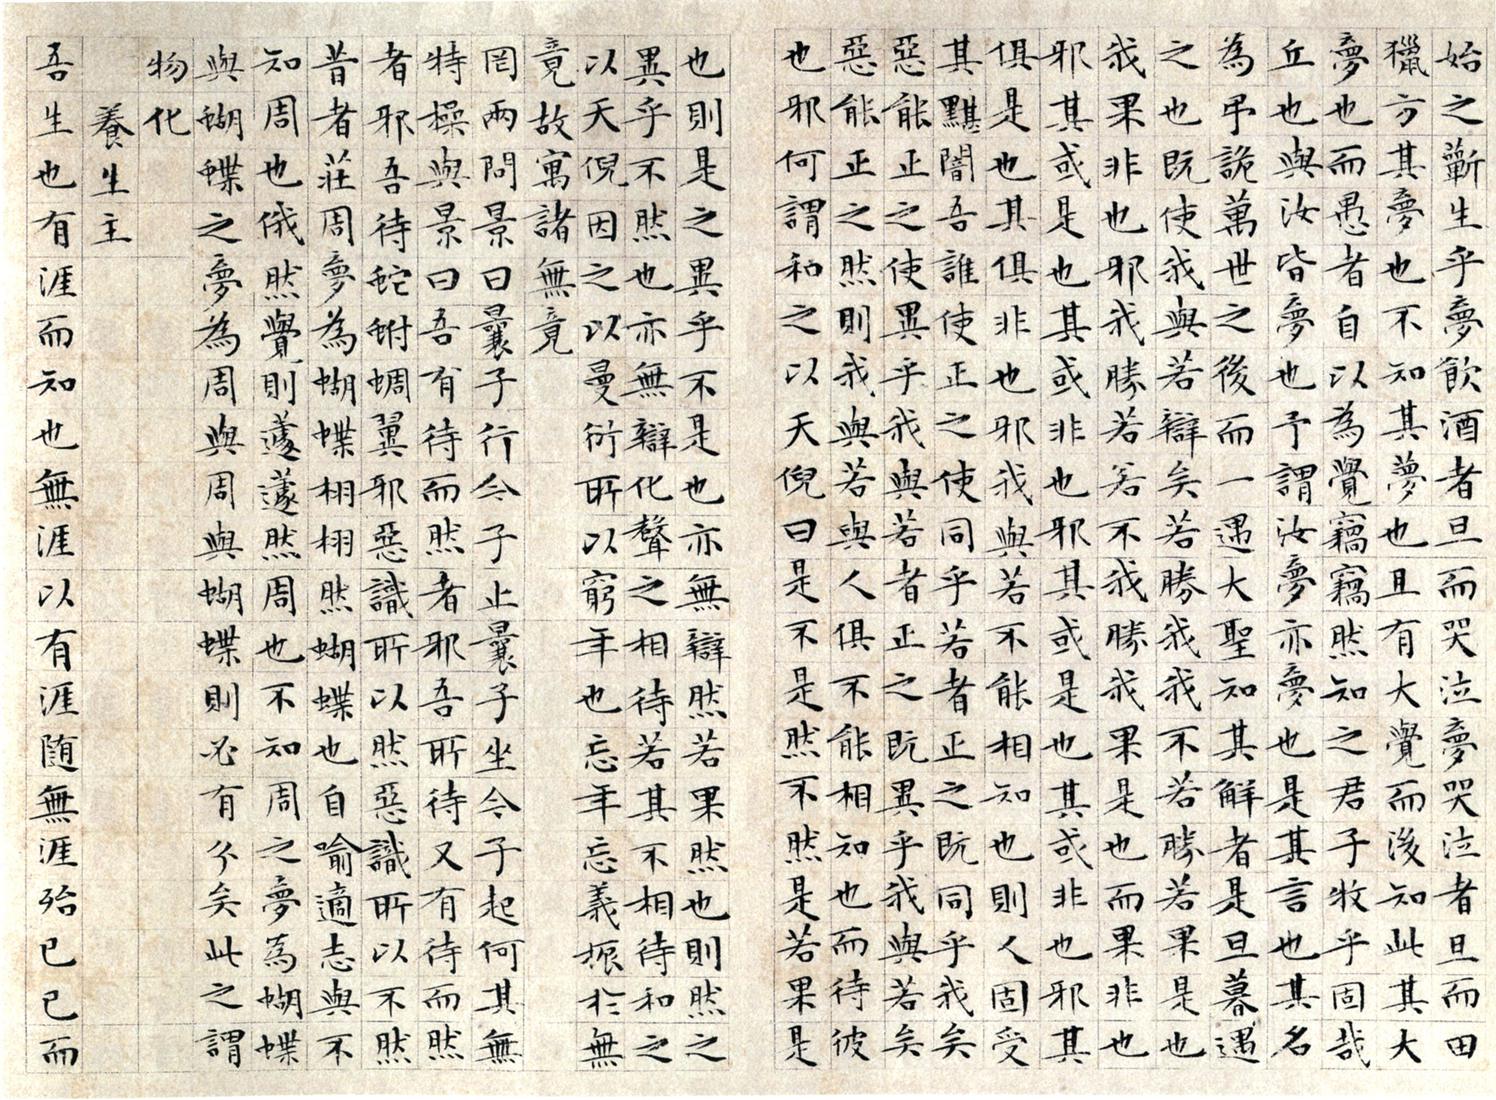 始之蘄生乎夢飲酒者旦而哭泣夢哭泣者旦而田
獵方其夢也不知其夢也且有大覺而後知此其大
夢也而愚者自以為覺竊竊然知之君子牧乎固哉
丘也與汝皆夢也予謂汝夢亦夢也是其言也其名
為弔詭萬世之後而一遇大聖知其解者是旦暮遇
之也既使我與若辯矣若勝我我不若勝若果是也
我果非也邪我勝若若不我勝我果是也而果非也
邪其或是也其或非也邪其或是也其或非也邪其
俱是也其俱非也邪我與若不能相知也則人固受
其黮闇吾誰使正之使同乎若者正之既同乎我矣
惡能正之使異乎我與若者正之既異乎我與若矣
惡能正之然則我與若與人俱不能相知也而待彼
也邪何謂和之以天倪曰是不是然不然是若果是
也則是之異乎不是也亦無辯然若果然也則然之
異乎不然也亦無辯化聲之相待若其不相待和之
以天倪因之以曼衍所以窮年也忘年忘義振於無
竟故寓諸無竟
罔兩問景曰曩子行今子止曩子坐今子起何其無
特操與景曰吾有待而然者邪吾所待又有待而然
者邪吾待蛇蚹蜩翼邪惡識所以然惡識所以不然
昔者莊周夢為蝴蝶栩栩然蝴蝶也自喻適志與不
知周也俄然覺則蘧蘧然周也不知周之夢為蝴蝶
與蝴蝶之夢為周與周與蝴蝶則必有分矣此之謂
物化
養生主
吾生也有涯而知也無涯以有涯隨無涯殆已已而